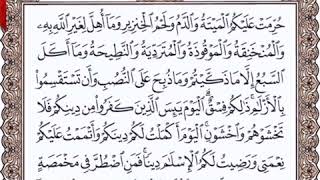 حُرِّمَتْ عَلَيْكُمُ ٱلْمَيْتَةُ وَٱلدَّمُ وَلَحْمُ ٱلْخِنزِيرِ وَمَآ أُهِلَّ لِغَيْرِ ٱللَّهِ بِهِۦ
وَٱلْمُنْخَنِقَةُ وَٱلْمَوْقُوذَةُ وَٱلْمُتَرَدِّيَةُ وَٱلنَّطِيحَةُ وَمَآ أَكَلَ
ٱلسَّبُعُ إِلَّا مَا ذَكَّيْتُمْ وَمَا ذُبِحَ عَلَى ٱلنُّصُبِ وَأَن تَسْتَقْسِمُوا۟
بِٱلْأَزْلَٰمِ ذَٰلِكُمْ فِسْقٌ ٱلْيَوْمَ يَئِسَ ٱلَّذِينَ كَفَرُوا۟ مِن دِينِكُمْ فَلَا
تَخْشَوْهُمْ وَٱخْشَوْنِ ٱلْيَوْمَ أَكْمَلْتُ لَكُمْ دِينَكُمْ وَأَتْمَمْتُ عَلَيْكُمْ
نِعْمَتِى وَرَضِيتُ لَكُمُ ٱلْإِسْلَٰمَ دِينًا فَمَنِ ٱضْطُرَّ فِى مَخْمَصَةٍ